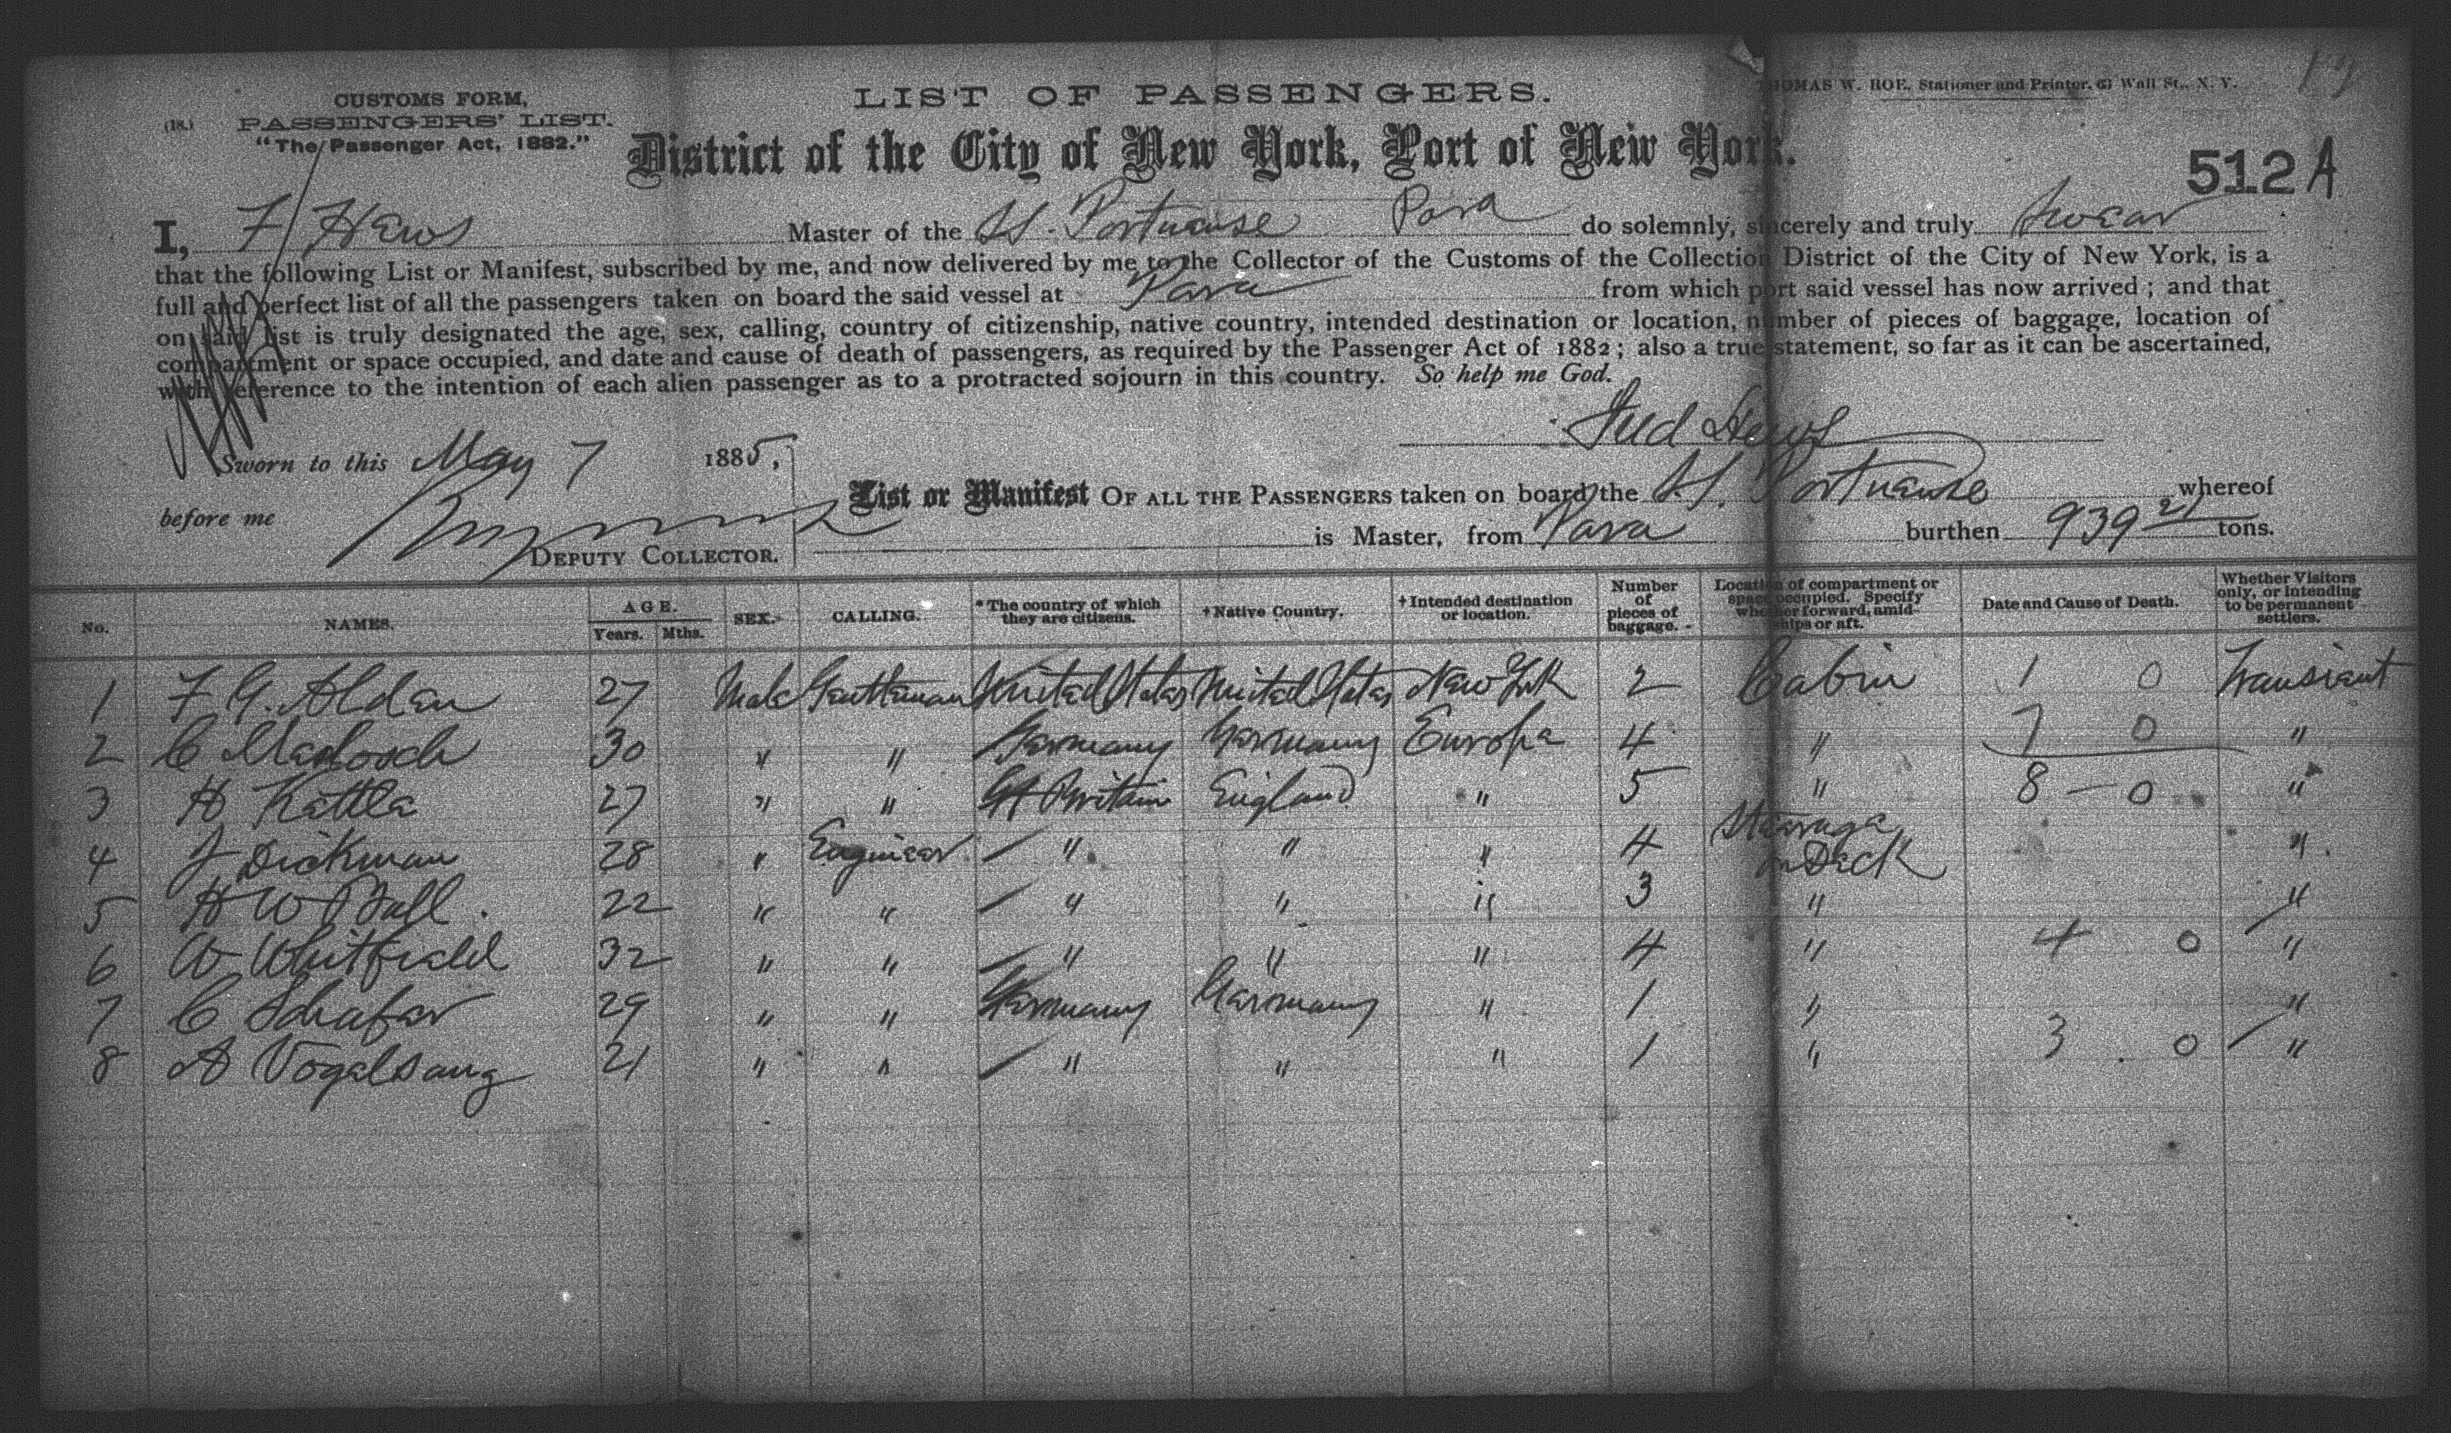 CUSTOMS FORM,
(18.) PASSENGERS' LIST.
"The Passenger Act, 1882."
LIST OF PASSENGERS.
THOMAS W. ROE, Stationer and Printer, 61 Wall St., N. Y.
District of the City of New York, Port of New York.
512 A
I, F Hews Master of the SS. Portuense Para do solemnly, sincerely and truly Swear
that the following List or Manifest, subscribed by me, and now delivered by me to the Collector of the Customs of the Collection District of the City of New York, is a
full and perfect list of all the passengers taken on board the said vessel at Para from which port said vessel has now arrived; and that
on said list is truly designated the age, sex, calling, country of citizenship, native country, intended destination or location, number of pieces of baggage, location of
compartment or space occupied, and date and cause of death of passengers, as required by the Passenger Act of 1882; also a true statement, so far as it can be ascertained,
with reference to the intention of each alien passenger as to a protracted sojourn in this country. So help me God.
Fred Hews
Sworn to this May 7 1885,
before me
DEPUTY COLLECTOR.
List or Manifest OF ALL THE PASSENGERS taken on board the SS. Portuense whereof
is Master, from Para burthen 939 21 tons.
No. NAMES. AGE. Years. Mths. SEX. CALLING. *The country of which they are citizens. †Native Country. †Intended destination or location. Number of pieces of baggage. Location of compartment or space occupied. Specify whether forward, amidships or aft. Date and Cause of Death. Whether Visitors only, or intending to be permanent settlers.
1 F G. Alden 27 Male Gentleman United States United States New York 2 Cabin 1 0 Transient
2 C 30 " " Germany Germany Europe 4 " 7 0 "
3 H Kattla 27 " " Gt Britain England " 5 " 8 - 0 "
4 J Dickman 28 " Engineer " " " 4 Steerage on Deck "
5 H W Ball. 22 " " " " " 3 " "
6 W Whitfield 32 " " " " " 4 " 4 0 "
7 C Schafer 29 " " Germany Germany " 1 " "
8 A Vogelsang 21 " " " " " 1 " 3 . 0 "